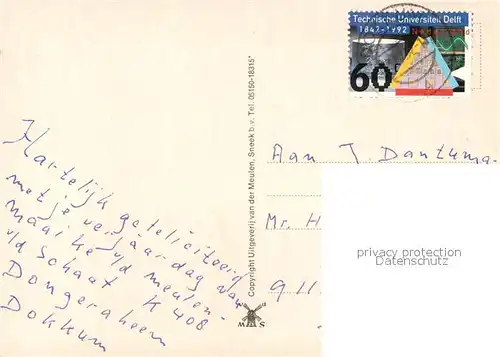 Technische Universiteit Delft
1842-1992
60
Nederland
Hartelijk gefeliciteerd
met je verjaardag van
Maaike v/d Meulen-
v/d Schaat K 408
Dongeraheem
Dokkum
Copyright Uitgeverij van der Meulen, Sneek b.v. Tel. 05150-18315*
v d
W S
Aan J. Dantuma-
Mr. H
911
privacy protection
Datenschutz